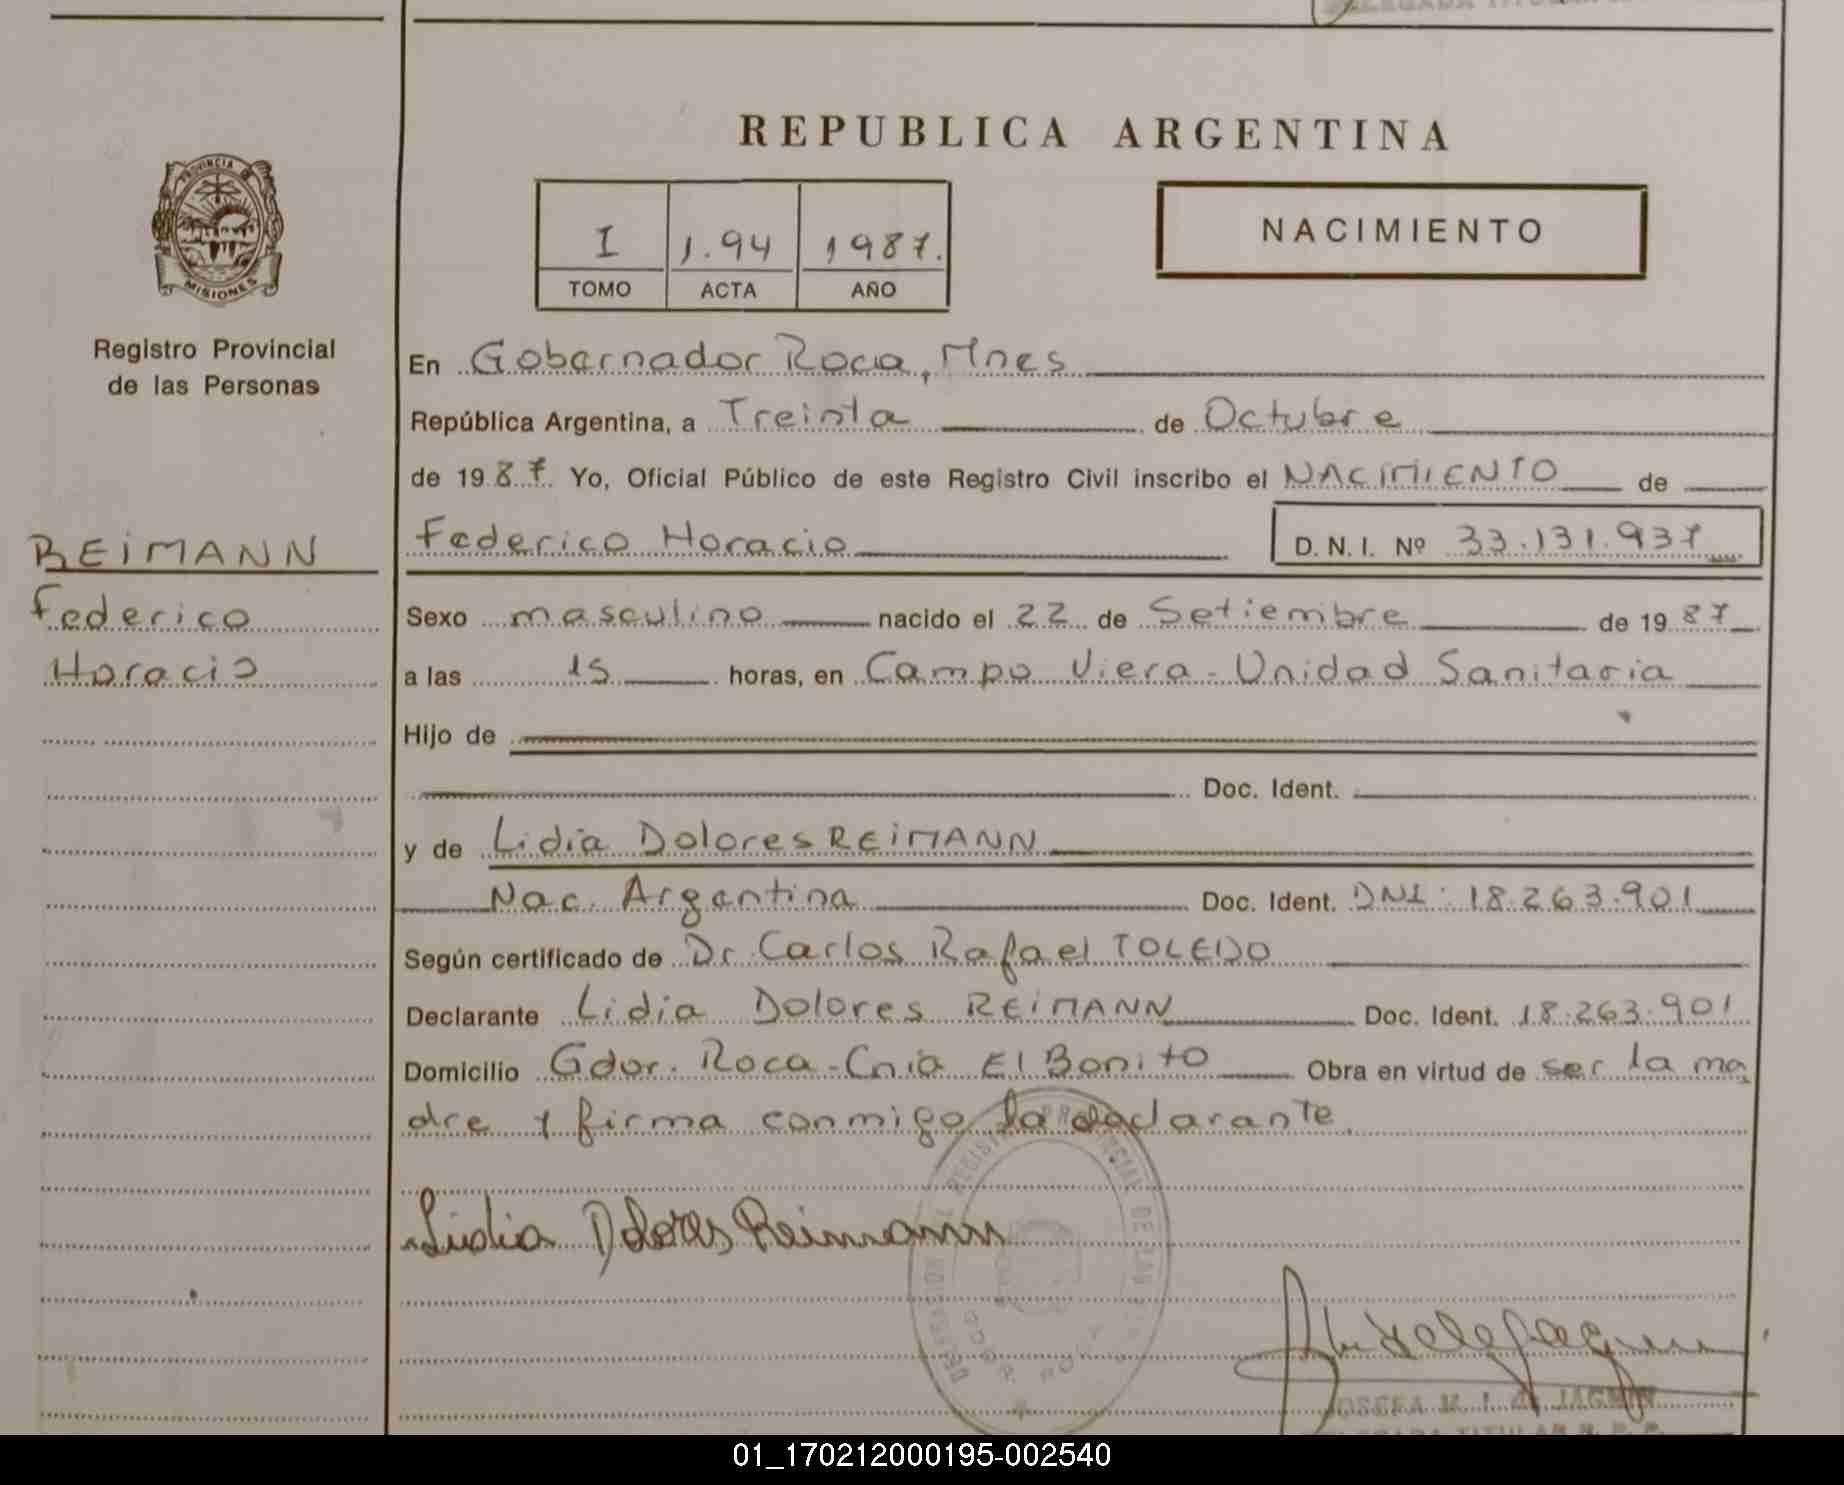 REPUBLICA ARGENTINA
PROVINCIA
MISIONES
I 1.94 1987.
TOMO ACTA AÑO
NACIMIENTO
Registro Provincial
de las Personas
En Gobernador Roca, Mnes
República Argentina, a Treinta de Octubre
de 1987. Yo, Oficial Público de este Registro Civil inscribo el NACIMIENTO de
REIMANN
Federico Horacio D.N.I. Nº 33.131.937
Federico
Sexo masculino nacido el 22 de Setiembre de 1987
Horacio
a las 15 horas, en Campo Viera - Unidad Sanitaria
Hijo de
Doc. Ident.
y de Lidia Dolores REIMANN
Nac. Argentina Doc. Ident. DNI: 18.263.901
Según certificado de Dr. Carlos Rafael TOLEDO
Declarante Lidia Dolores REIMANN Doc. Ident. 18.263.901
Domicilio Gdor. Roca - Cnia El Bonito Obra en virtud de ser la ma
dre y firma conmigo la declarante.
Lidia Dolores Reimann
JOSEFA M. I. de JAGMIN
TITULAR R. P. P.
01_170212000195-002540